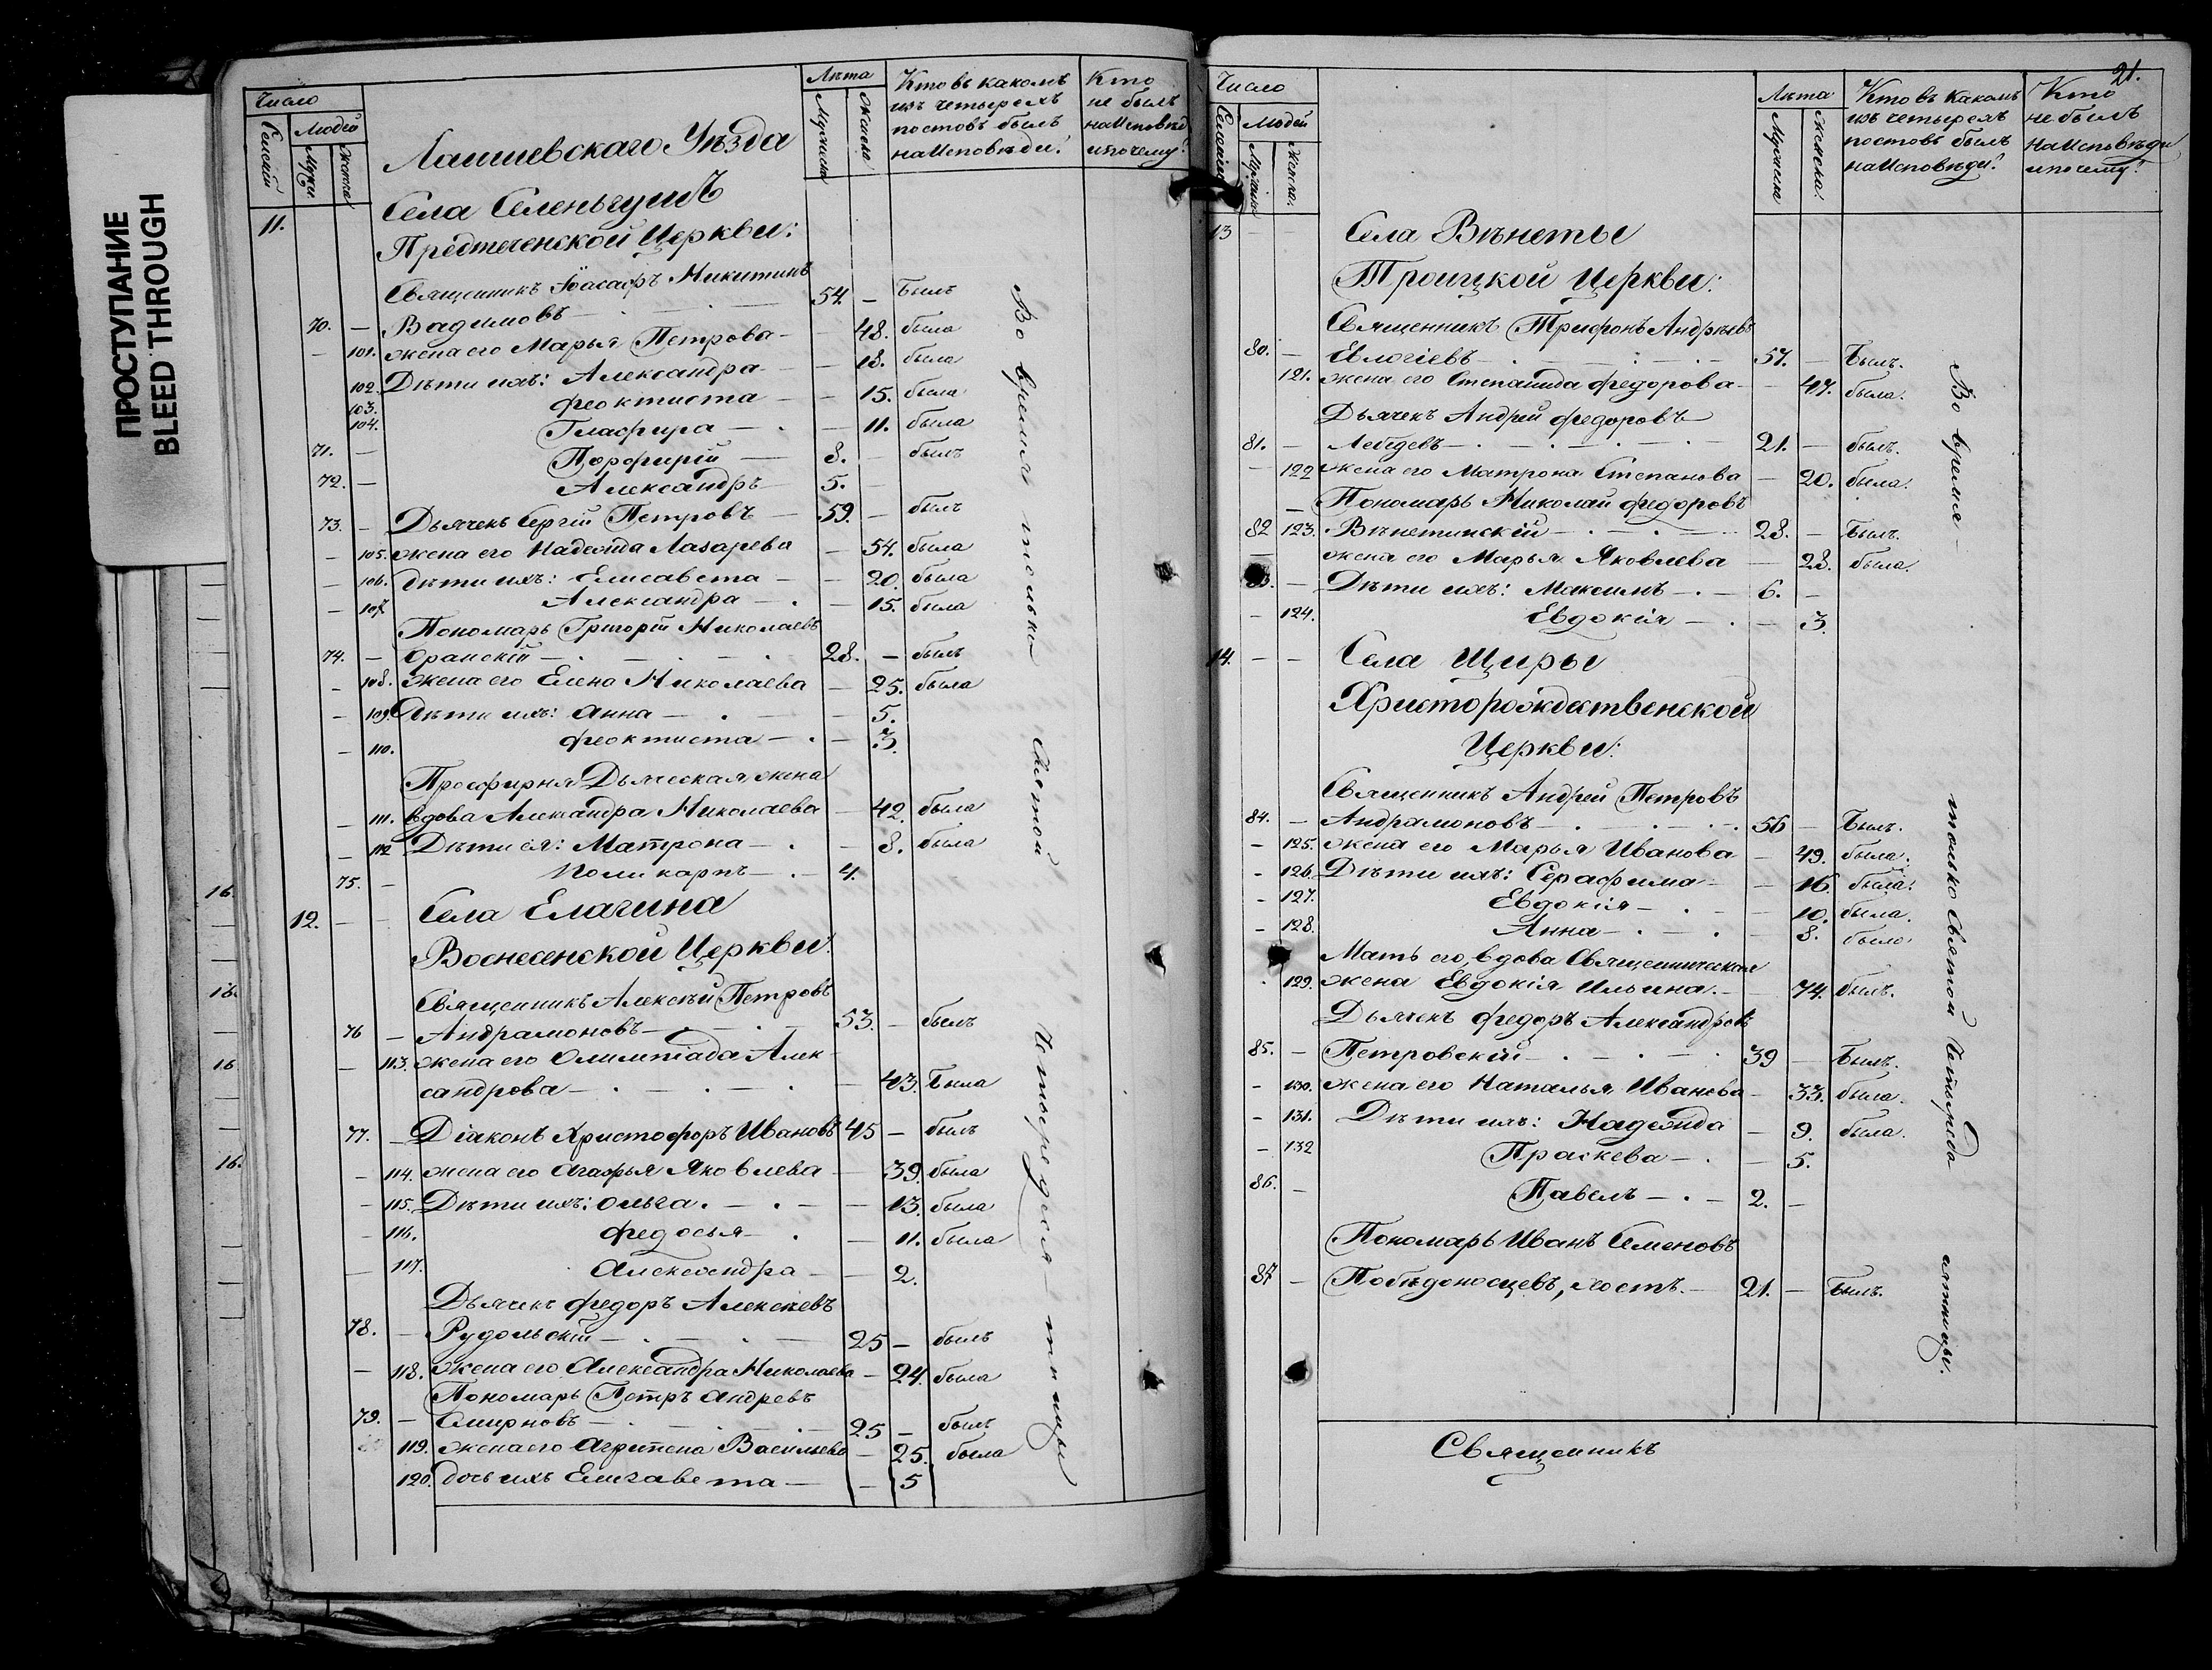 ПРОСТУПАНИЕ
BLEED THROUGH
Число
Людей
Лаишевскаго Уѣзда
Лѣта
Мужеска
Женска
Кто въ какомъ
изъ четырехъ
постовъ былъ
на Исповѣди?
Кто
не былъ
на Исповѣд
и почему?
11. Села Селеньгушъ
Предтеченской Церкви:
Священникъ Іоасафъ Никитинъ
70. — Вадимовъ — 54. — Былъ
— 101. жена его Марья Петрова — — 48. была
102. Дѣти ихъ: Александра — — 18. была
103. Феоктиста — — 15. была
104. Глафира — — 11. была
71. — Порфирій — 8. — былъ
72. — Александръ 5. —
73. — Дьячекъ Сергій Петровъ — 59. — былъ
— 105. жена его Надежда Лазарева — 54. была
— 106. дѣти ихъ: Елисавета — — 20. была
— 107. Александра — — 15. была
Пономарь Григорій Николаевъ
74. — Оранскій — 28. — былъ
— 108. жена его Елена Николаева — 25. была
— 109. Дѣти ихъ: Анна — — 5.
— 110. Феоктиста — — 3.
Просфирня Дьяческая жена
— 111. вдова Александра Николаева — 42. была
— 112 Дѣти ея: Матрона — — 8. была
75. — Поликарпъ — 4.
12. — — Села Елагина
Вознесенской Церкви:
Священникъ Алексѣй Петровъ
76 — Андрамоновъ — 53. — былъ
— 113. жена его Олимпіада Алек-
сандрова — — 43. Была
77. — Діаконъ Христофоръ Ивановъ 45 — былъ
— 114. жена его Агафья Яковлева — 39. была
— 115. Дѣти ихъ: Ольга. — — 13. была
— 116. Федосья — — 11. была
— 117. Александра — — 2.
Дьячекъ Федоръ Алексѣевъ
78. — Рудольскій — 25 — былъ
— 118. жена его Александра Николаева — 24. была
Пономарь Петръ Андреевъ
79. — Смирновъ — 25 — былъ
119. жена его Агрипена Васильева — 25. была
120. дочь ихъ Елизавета — — 5
Во время только Святой Четыредеся-тницы
21.
Число
Людей
Лѣта
Мужеска
Женска.
Кто въ какомъ
изъ четырехъ
постовъ былъ
на Исповѣди?
Кто
не былъ
на Исповѣди
и почему?
13 — — Села Вѣнеты
Троицкой Церкви:
Священникъ Трифонъ Андреевъ
80. — Евлогіевъ — 57. — Былъ.
121. жена его Степанида Федорова — — 47. была.
Дьячекъ Андрей Федоровъ
81. — Лебедевъ — 21. — былъ.
— 122 жена его Матрона Степанова — 20. была.
— Пономарь Николай Федоровъ
82 123. Вѣнетинскій — 28. — Былъ.
— жена его Марья Яковлева — 28. была.
83. — Дѣти ихъ: Максимъ — 6. —
— 124. Евдокія — — 3.
14. — — Села Щиры
Христорождественской
Церкви:
Священникъ Андрей Петровъ
84. — Андрамоновъ — 56 — Былъ.
— 125. жена его Марья Иванова — 49. была.
— 126. Дѣти ихъ: Серафима — — 16. была.
— 127. Евдокія — — 10. была.
— 128. Анна — — 8. была.
Мать его, вдова Священническая
129. жена Евдокія Ильина. — 74. былъ.
Дьячекъ Федоръ Александровъ
85. — Петровскій — 39 — Былъ.
— 130. жена его Наталья Иванова — 33. была.
— 131. Дѣти ихъ: Надежда — 9. была.
— 132 Праскева — — 5.
86. — Павелъ — 2. —
Пономарь Иванъ Семеновъ
87 — Побѣдоносцевъ, холостъ. — 21. — Былъ.
Во время — только Святой Четыредесятницы.
Священникъ
16
16.
16
16.